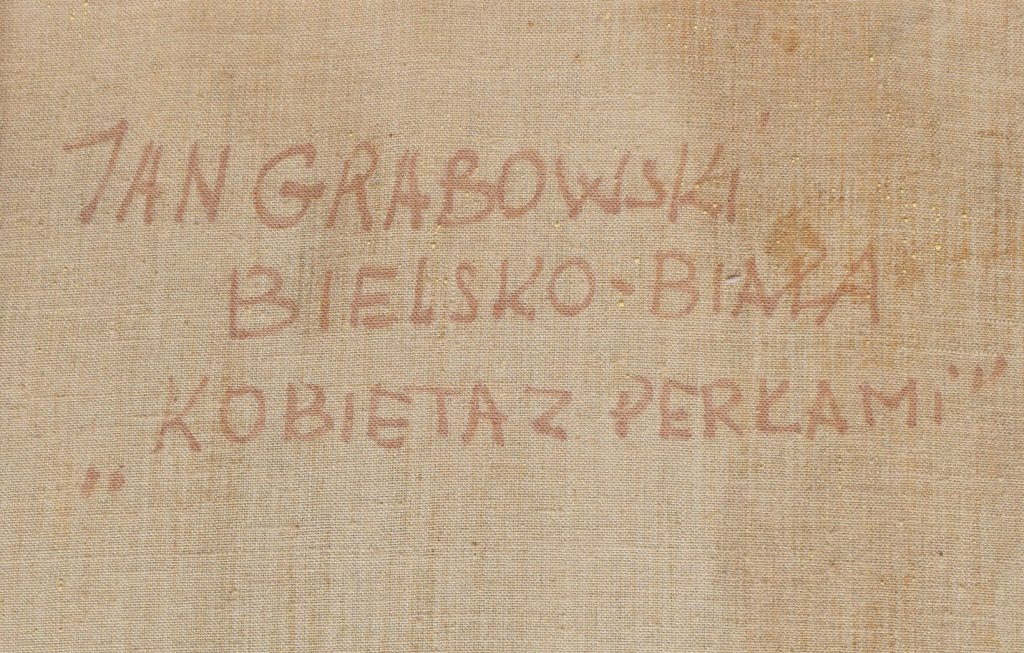 JAN GRABOWSKI
BIELSKO-BIAŁA
„KOBIETA Z PERŁAMI”